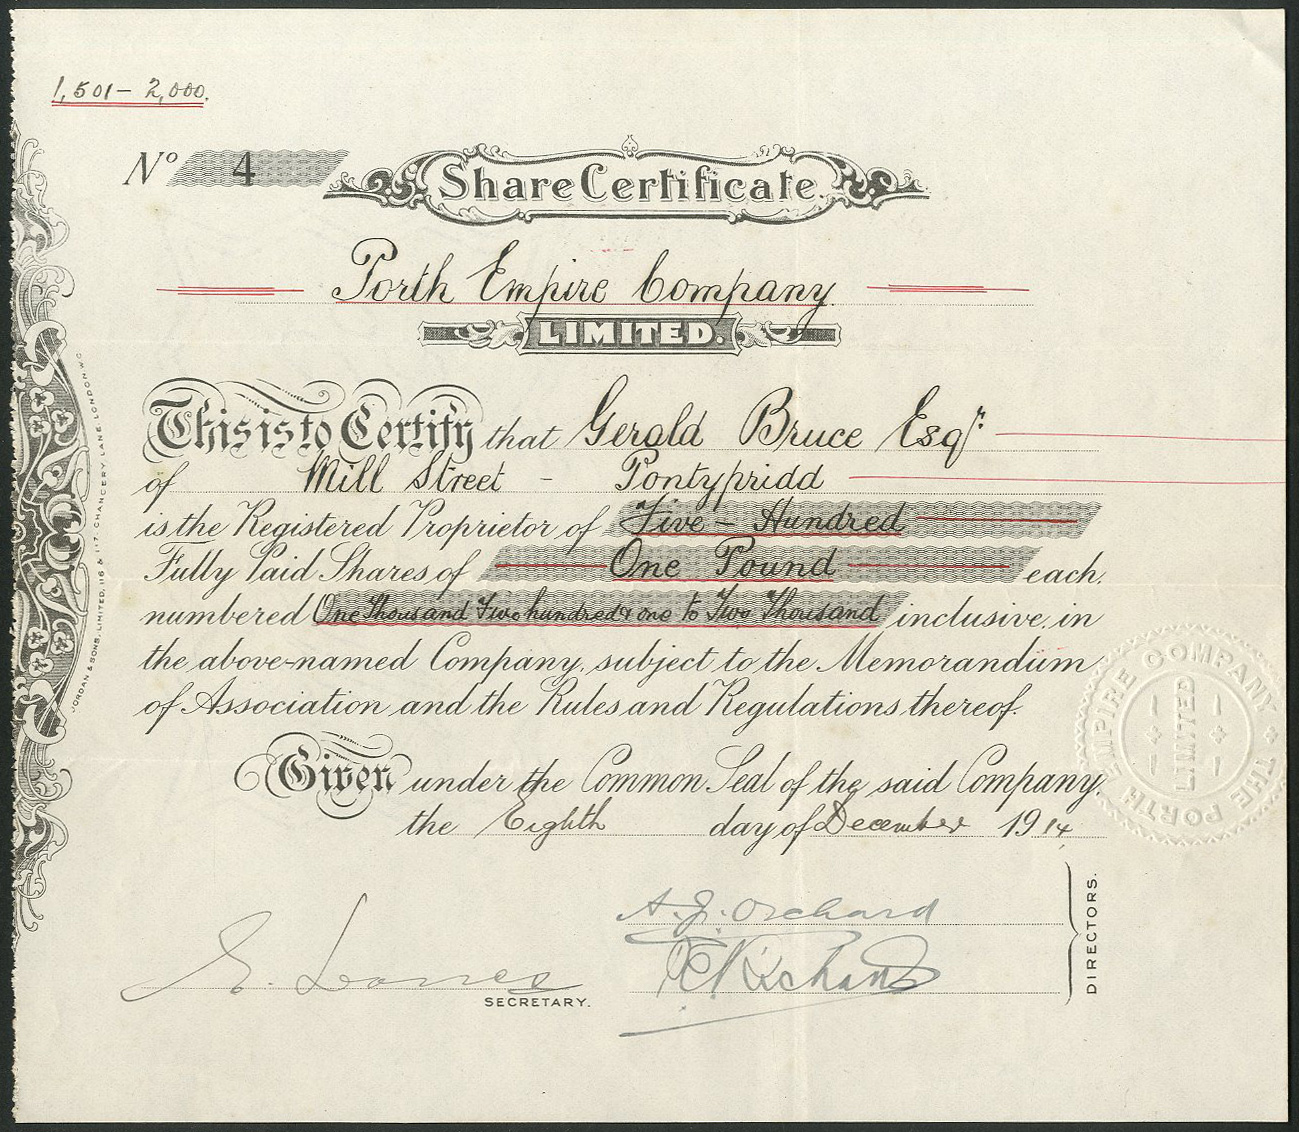 1,501 – 2,000.
No 4
Share Certificate.
Porth Empire Company
LIMITED.
This is to Certify that Gerald Bruce Esqr.
of Mill Street - Pontypridd
is the Registered Proprietor of Five - Hundred
Fully Paid Shares of One Pound each,
numbered One Thousand Five hundred & one to Two Thousand inclusive, in
the above-named Company, subject to the Memorandum
of Association and the Rules and Regulations thereof.
Given under the Common Seal of the said Company,
the Eighth day of December 1914
A. J. Orchard
SECRETARY.
DIRECTORS.
JORDAN & SONS, LIMITED, 116 & 117, CHANCERY LANE, LONDON, W.C.
THE PORTH EMPIRE COMPANY
LIMITED